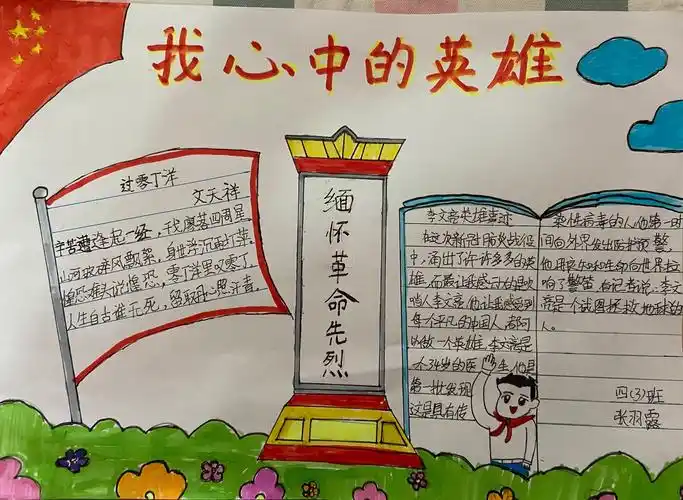 我心中的英雄
过零丁洋
文天祥
辛苦遭逢起一经，我廖落四周星
山河破碎风飘絮，身世浮沉雨打萍。
惶恐滩头说惶恐，零丁洋里叹零丁
人生自古谁无死，留取丹心照汗青。
缅怀革命先烈
李文亮英雄事迹
在这次新冠肺炎战役
中，涌出了许许多多的英
雄，而最让我感动的是吹
哨人李文亮，他让我感受到
每个平凡的中国人，都可
以做一个英雄，李文亮是
一个34岁的医生，他是
第一批发现
这是具有传
染性病毒的人，他第一时
间向外界发出防护预警，
他用
向世界拉
响了警笛，有记者说：李文
亮是个试图拯救地球的
人。
四(3)班
张羽露